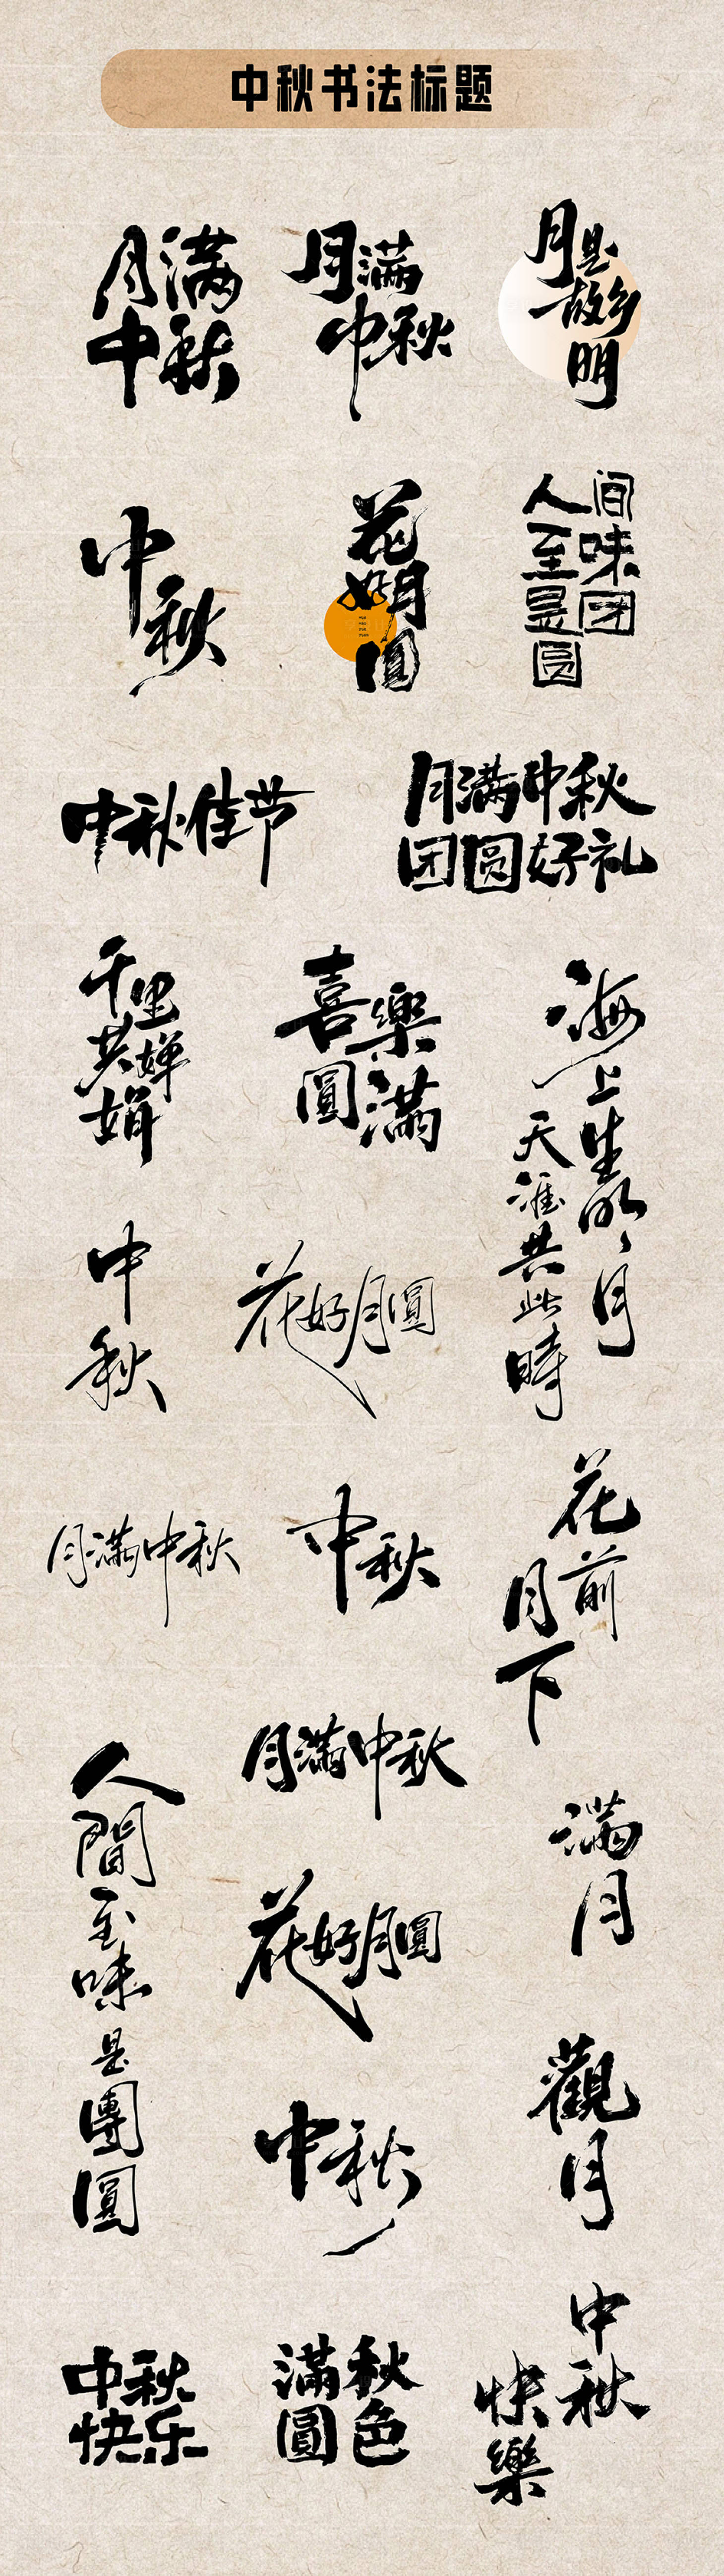 中秋书法标题
月满
中秋
月满
中秋
月是
故乡
明
中
秋
花
好月
圆
人间
至味
是团
圆
中秋佳节
月满中秋
团圆好礼
千里
共婵
娟
喜樂
圓滿
海上生明月
天涯共此時
中
秋
花好月圓
月满中秋
中秋
花前
月下
人間至味是團圓
月滿中秋
满月
花好月圓
觀月
中秋
中秋
快乐
秋色
滿圓
中秋
快樂